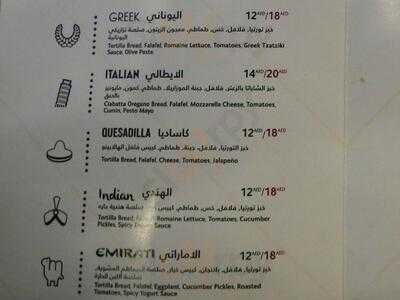 GREEK اليوناني 12 AED/18 AED
خبز تورتيا, فلافل, خس, طماطم, معجون الزيتون, صلصة تزاتزيكي
اليونانية
Tortilla Bread, Falafel, Romaine Lettuce, Tomatoes, Greek Tzatziki
Sauce, Olive Paste
ITALIAN الايطالي 14 AED/20 AED
خبز الشاباتا بالزعتر, فلافل, جبنة الموزاريلا, طماطم, كمون, مايونيز
بالحبق
Ciabatta Oregano Bread, Falafel, Mozzarella Cheese, Tomatoes,
Cumin, Pesto Mayo
QUESADILLA كاساديا 12 AED/18 AED
خبز التورتيا, فلافل, جبنة, طماطم, كبيس فلفل الهالابينو
Tortilla Bread, Falafel, Cheese, Tomatoes, Jalapeño
Indian الهندي 12 AED/18 AED
خبز تورتيا, فلافل, خس, طماطم, كبيس صلصة هندية حارة
Tortilla Bread, Falafel, Romaine Lettuce, Tomatoes, Cucumber
Pickles, Spicy Sauce
EMIRATI الاماراتي 12 AED/18 AED
خبز تورتيا, فلافل, باذنجان, كبيس خيار, صلصة الطماطم المشوية,
صلصة اللبن الحارة
Tortilla Bread, Falafel, Eggplant, Cucumber Pickles, Roasted
Tomatoes, Spicy Yogurt Sauce